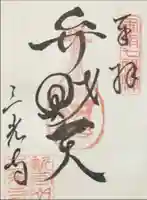 奉拝
弁財天
三光寺